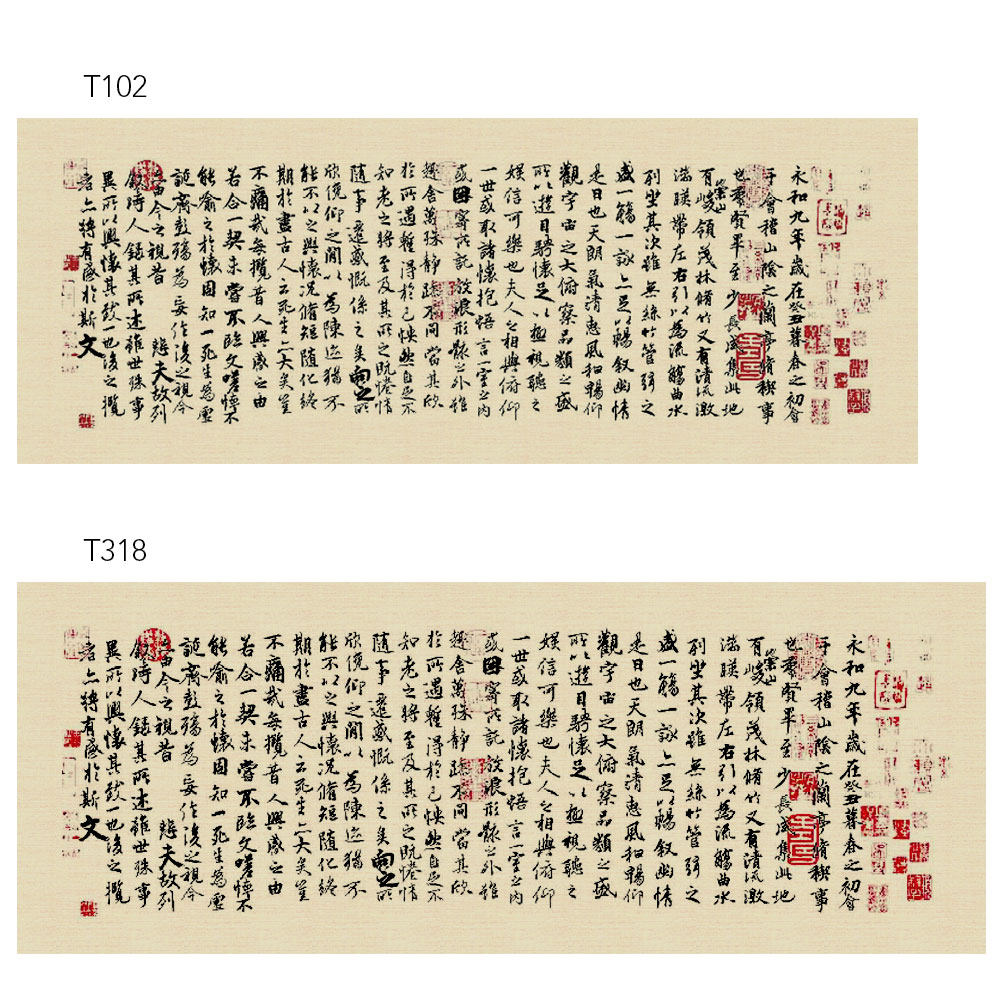 T102
永和九年歲在癸丑暮春之初會
于會稽山陰之蘭亭脩稧事
也羣賢畢至少長咸集此地
有崇山峻領茂林脩竹又有清流激
湍暎帶左右引以為流觴曲水
列坐其次雖無絲竹管弦之
盛一觴一詠亦足以暢敘幽情
是日也天朗氣清惠風和暢仰
觀宇宙之大俯察品類之盛
所以遊目騁懷足以極視聽之
娛信可樂也夫人之相與俯仰
一世或取諸懷抱悟言一室之內
或因寄所託放浪形骸之外雖
趣舍萬殊靜躁不同當其欣
於所遇蹔得於己怏然自足不
知老之將至及其所之既惓情
隨事遷感慨係之矣向之所
欣俛仰之閒以為陳迹猶不
能不以之興懷況脩短隨化終
期於盡古人云死生亦大矣豈
不痛哉每攬昔人興感之由
若合一契未嘗不臨文嗟悼不
能喻之於懷固知一死生為虛
誕齊彭殤為妄作後之視今
亦由今之視昔 悲夫故列
敘時人錄其所述雖世殊事
異所以興懷其致一也後之攬
者亦將有感於斯文
T318
永和九年歲在癸丑暮春之初會
于會稽山陰之蘭亭脩稧事
也羣賢畢至少長咸集此地
有崇山峻領茂林脩竹又有清流激
湍暎帶左右引以為流觴曲水
列坐其次雖無絲竹管弦之
盛一觴一詠亦足以暢敘幽情
是日也天朗氣清惠風和暢仰
觀宇宙之大俯察品類之盛
所以遊目騁懷足以極視聽之
娛信可樂也夫人之相與俯仰
一世或取諸懷抱悟言一室之內
或因寄所託放浪形骸之外雖
趣舍萬殊靜躁不同當其欣
於所遇蹔得於己怏然自足不
知老之將至及其所之既惓情
隨事遷感慨係之矣向之所
欣俛仰之閒以為陳迹猶不
能不以之興懷況脩短隨化終
期於盡古人云死生亦大矣豈
不痛哉每攬昔人興感之由
若合一契未嘗不臨文嗟悼不
能喻之於懷固知一死生為虛
誕齊彭殤為妄作後之視今
亦由今之視昔 悲夫故列
敘時人錄其所述雖世殊事
異所以興懷其致一也後之攬
者亦將有感於斯文